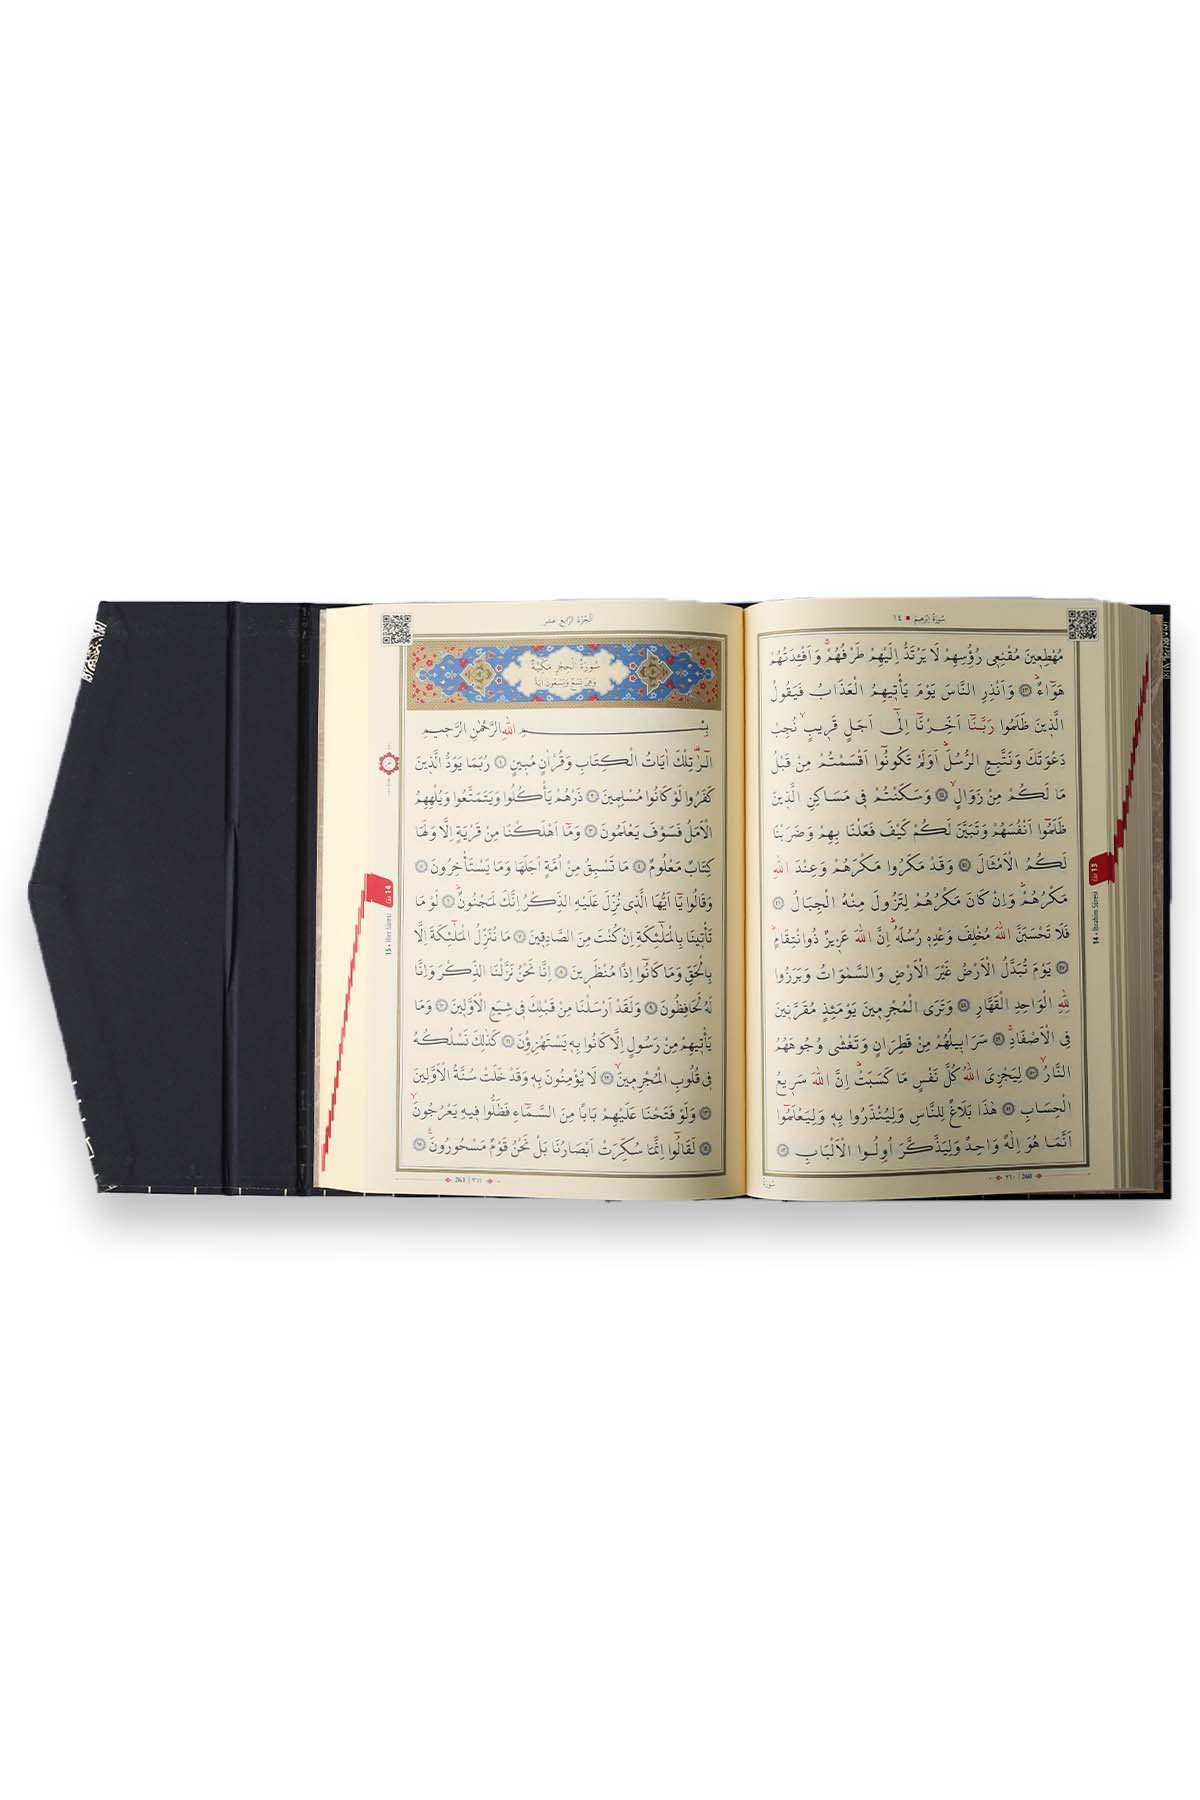 سُورَةُ اِبْرٰهِيمَ ١٤
مُهْطِعِينَ مُقْنِعِى رُؤُسِهِمْ لَا يَرْتَدُّ اِلَيْهِمْ طَرْفُهُمْۚ وَاَفْـِٔدَتُهُمْ
هَوَٓاءٌۜ ﴿٤٣﴾ وَاَنْذِرِ النَّاسَ يَوْمَ يَأْت۪يهِمُ الْعَذَابُ فَيَقُولُ
الَّذ۪ينَ ظَلَمُوا رَبَّنَٓا اَخِّرْنَٓا اِلٰٓى اَجَلٍ قَر۪يبٍۙ نُجِبْ
دَعْوَتَكَ وَنَتَّبِعِ الرُّسُلَۜ اَوَلَمْ تَكُونُٓوا اَقْسَمْتُمْ مِنْ قَبْلُ
مَا لَكُمْ مِنْ زَوَالٍۙ ﴿٤٤﴾ وَسَكَنْتُمْ ف۪ى مَسَاكِنِ الَّذ۪ينَ
ظَلَمُٓوا اَنْفُسَهُمْ وَتَبَيَّنَ لَكُمْ كَيْفَ فَعَلْنَا بِهِمْ وَضَرَبْنَا
لَكُمُ الْاَمْثَالَ ﴿٤٥﴾ وَقَدْ مَكَرُوا مَكْرَهُمْ وَعِنْدَ اللّٰهِ
مَكْرُهُمْۜ وَاِنْ كَانَ مَكْرُهُمْ لِتَزُولَ مِنْهُ الْجِبَالُ ﴿٤٦﴾
فَلَا تَحْسَبَنَّ اللّٰهَ مُخْلِفَ وَعْدِه۪ رُسُلَهُۜ اِنَّ اللّٰهَ عَز۪يزٌ ذُوانْتِقَامٍۜ
﴿٤٧﴾ يَوْمَ تُبَدَّلُ الْاَرْضُ غَيْرَ الْاَرْضِ وَالسَّمٰوَاتُ وَبَرَزُوا
لِلّٰهِ الْوَاحِدِ الْقَهَّارِ ﴿٤٨﴾ وَتَرَى الْمُجْرِم۪ينَ يَوْمَئِذٍ مُقَرَّن۪ينَ
فِى الْاَصْفَادِۚ ﴿٤٩﴾ سَرَاب۪يلُهُمْ مِنْ قَطِرَانٍ وَتَغْشٰى وُجُوهَهُمُ
النَّارُۙ ﴿٥٠﴾ لِيَجْزِىَ اللّٰهُ كُلَّ نَفْسٍ مَا كَسَبَتْۜ اِنَّ اللّٰهَ سَر۪يعُ
الْحِسَابِ ﴿٥١﴾ هٰذَا بَلَاغٌ لِلنَّاسِ وَلِيُنْذَرُوا بِه۪ وَلِيَعْلَمُٓوا
اَنَّمَا هُوَ اِلٰهٌ وَاحِدٌ وَلِيَذَّكَّرَ اُو۬لُوا الْاَلْبَابِ ﴿٥٢﴾
سُورَةُ
٢٦٠ | 260
13
14 • İbrahim Sûresi
اَلْجُزْءُ الرَّابِعُ عَشَرَ
سُورَةُ الْحِجْرِ مَكِّيَّةٌ
وَهِىَ تِسْعٌ وَتِسْعُونَ اٰيَةً
بِسْــــــــمِ اللّٰهِ الرَّحْمٰنِ الرَّح۪يمِ
الٓرٰ۠ تِلْكَ اٰيَاتُ الْكِتَابِ وَقُرْاٰنٍ مُب۪ينٍ ﴿١﴾ رُبَمَا يَوَدُّ الَّذ۪ينَ
كَفَرُوا لَوْ كَانُوا مُسْلِم۪ينَ ﴿٢﴾ ذَرْهُمْ يَأْكُلُوا وَيَتَمَتَّعُوا وَيُلْهِهِمُ
الْاَمَلُ فَسَوْفَ يَعْلَمُونَ ﴿٣﴾ وَمَٓا اَهْلَكْنَا مِنْ قَرْيَةٍ اِلَّا وَلَهَا
كِتَابٌ مَعْلُومٌ ﴿٤﴾ مَا تَسْبِقُ مِنْ اُمَّةٍ اَجَلَهَا وَمَا يَسْتَأْخِرُونَ ﴿٥﴾
وَقَالُوا يَٓا اَيُّهَا الَّذ۪ى نُزِّلَ عَلَيْهِ الذِّكْرُ اِنَّكَ لَمَجْنُونٌۜ ﴿٦﴾ لَوْ مَا
تَأْت۪ينَا بِالْمَلٰٓئِكَةِ اِنْ كُنْتَ مِنَ الصَّادِق۪ينَ ﴿٧﴾ مَا نُنَزِّلُ الْمَلٰٓئِكَةَ اِلَّا
بِالْحَقِّ وَمَا كَانُٓوا اِذًا مُنْظَر۪ينَ ﴿٨﴾ اِنَّا نَحْنُ نَزَّلْنَا الذِّكْرَ وَاِنَّا
لَهُ لَحَافِظُونَ ﴿٩﴾ وَلَقَدْ اَرْسَلْنَا مِنْ قَبْلِكَ ف۪ى شِيَعِ الْاَوَّل۪ينَ ﴿١٠﴾ وَمَا
يَأْت۪يهِمْ مِنْ رَسُولٍ اِلَّا كَانُوا بِه۪ يَسْتَهْزِؤُ۫نَ ﴿١١﴾ كَذٰلِكَ نَسْلُكُهُ
ف۪ى قُلُوبِ الْمُجْرِم۪ينَۙ ﴿١٢﴾ لَا يُؤْمِنُونَ بِه۪ وَقَدْ خَلَتْ سُنَّةُ الْاَوَّل۪ينَ
﴿١٣﴾ وَلَوْ فَتَحْنَا عَلَيْهِمْ بَابًا مِنَ السَّمَٓاءِ فَظَلُّوا ف۪يهِ يَعْرُجُونَۙ
﴿١٤﴾ لَقَالُٓوا اِنَّمَا سُكِّرَتْ اَبْصَارُنَا بَلْ نَحْنُ قَوْمٌ مَسْحُورُونَ۟ ﴿١٥﴾
261 | ٢٦١
14
15 • Hicr Sûresi